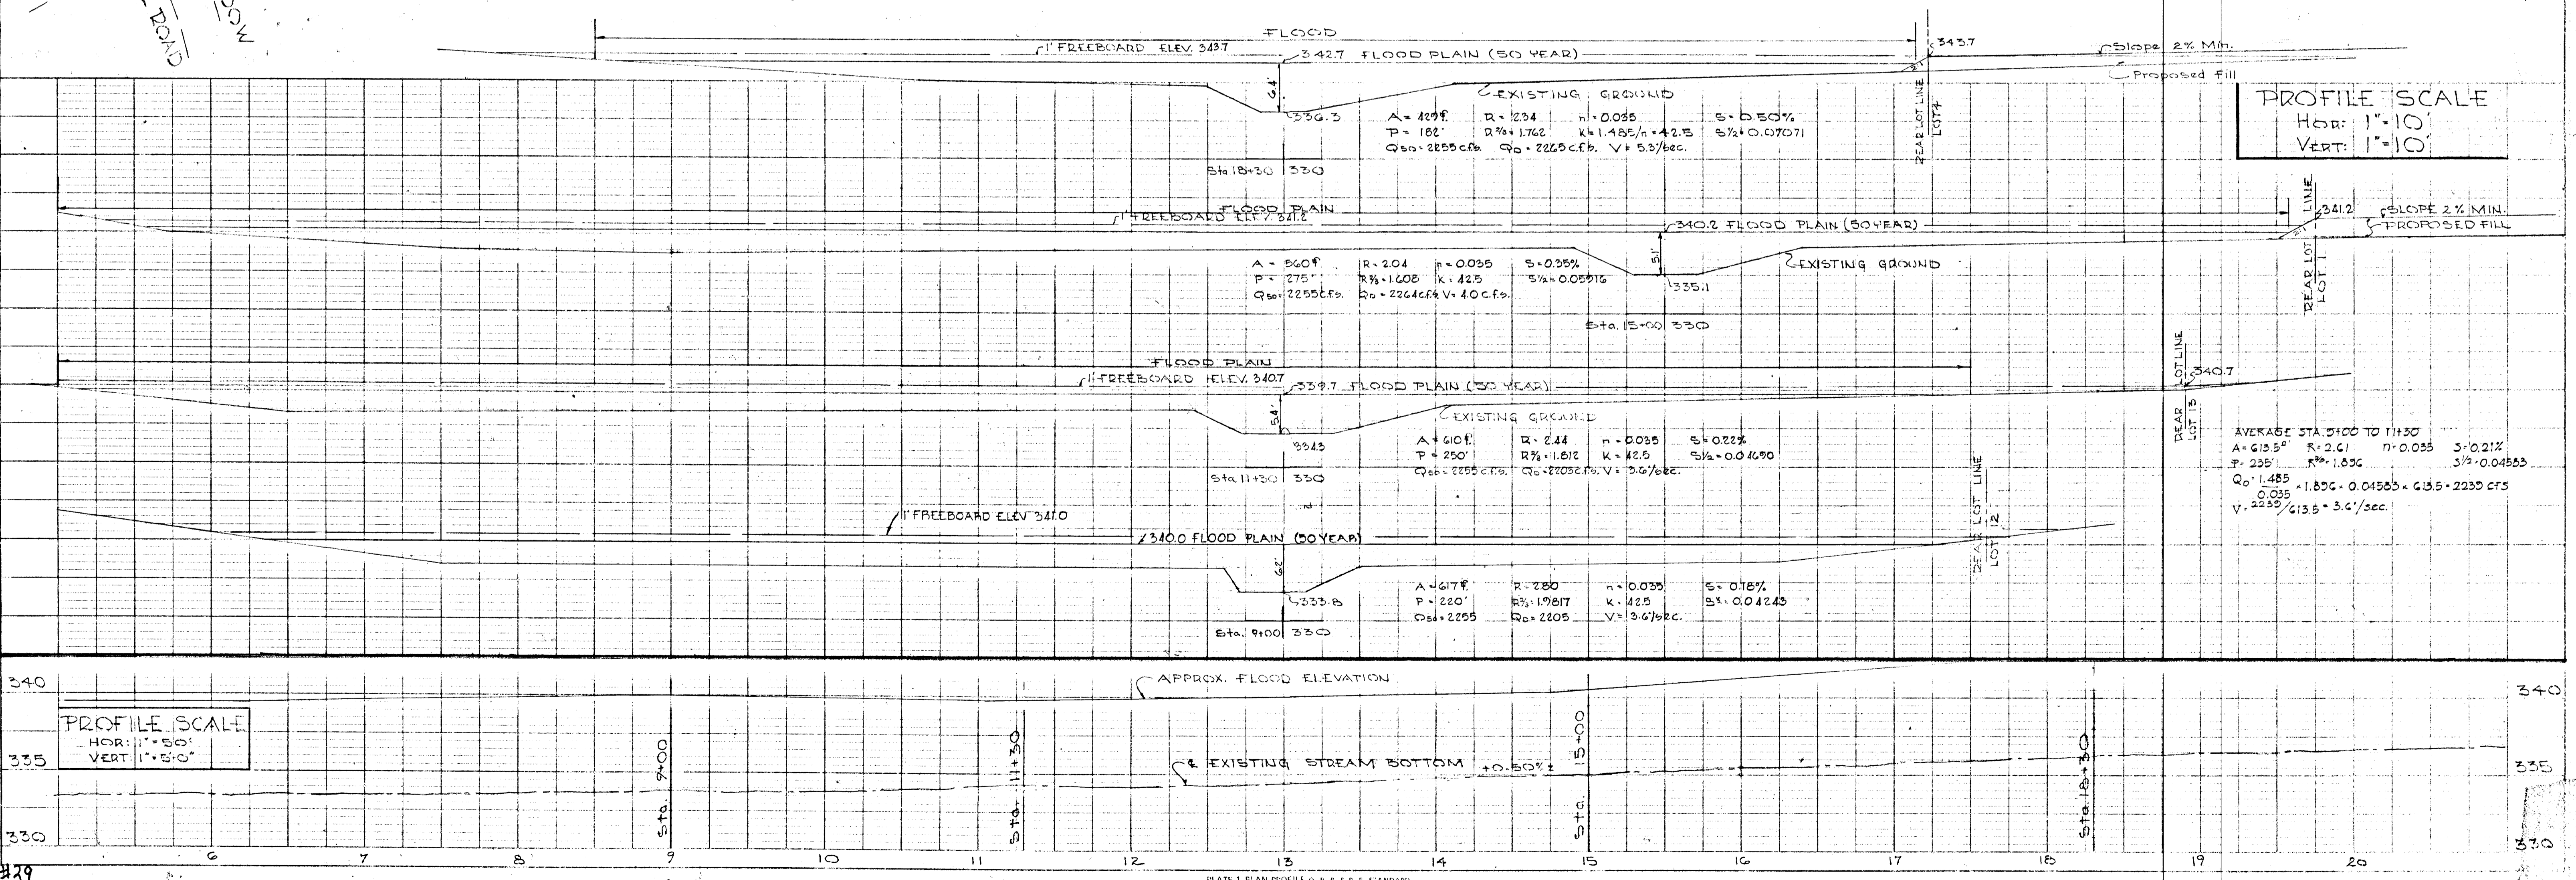 ROAD
FLOOD
1' FREEBOARD ELEV. 343.7
342.7 FLOOD PLAIN (50 YEAR)
343.7
Slope 2% Min.
Proposed Fill
6.4'
EXISTING GROUND
336.3
A = 429
R = 2.34
n = 0.035
S = 0.50%
P = 182'
R⅔ = 1.762
K = 1.485/n = 42.5
S½ = 0.07071
Q50 = 2255 c.f.s.
QD = 2265 c.f.s.
V = 5.3'/sec.
REAR LOT LINE
LOT 4
PROFILE SCALE
HOR: 1"=10'
VERT: 1"=10'
Sta. 18+30
330
FLOOD PLAIN
1' FREEBOARD ELEV. 341.2
340.2 FLOOD PLAIN (50 YEAR)
341.2
SLOPE 2% MIN.
PROPOSED FILL
REAR LOT LINE
LOT 1
5.1'
EXISTING GROUND
335.1
A = 560
R = 2.04
n = 0.035
S = 0.35%
P = 275'
R⅔ = 1.608
K = 42.5
S½ = 0.05916
Q50 = 2255 c.f.s.
QD = 2264 c.f.s.
V = 4.0 c.f.s.
Sta. 15+00
330
FLOOD PLAIN
1' FREEBOARD ELEV. 340.7
339.7 FLOOD PLAIN (50 YEAR)
340.7
REAR LOT LINE
LOT 13
5.4'
EXISTING GROUND
334.3
A = 610
R = 2.44
n = 0.035
S = 0.22%
P = 250'
R⅔ = 1.812
K = 42.5
S½ = 0.04690
Q50 = 2255 c.f.s.
QD = 2203 c.f.s.
V = 3.6'/sec.
Sta 11+30
330
AVERAGE STA. 9+00 TO 11+30
A = 613.5
R = 2.61
n = 0.035
S = 0.21%
P = 235'
R⅔ = 1.896
S½ = 0.04583
QD = 1.485/0.035 × 1.896 × 0.04583 × 613.5 = 2239 CFS
V = 2239/613.5 = 3.6'/sec.
1' FREEBOARD ELEV 341.0
340.0 FLOOD PLAIN (50 YEAR)
REAR LOT LINE
LOT 12
6.2'
333.8
A = 617
R = 2.80
n = 0.035
S = 0.18%
P = 220'
R⅔ = 1.9817
K = 42.5
S½ = 0.04243
Q50 = 2255
QD = 2205
V = 3.6'/sec.
Sta. 9+00
330
340
APPROX. FLOOD ELEVATION
340
PROFILE SCALE
HOR: 1"=50'
VERT: 1"=5.0'
335
Sta. 9+00
Sta. 11+30
℄ EXISTING STREAM BOTTOM +0.50%±
Sta. 15+00
Sta. 18+30
335
330
330
6 7 8 9 10 11 12 13 14 15 16 17 18 19 20
#29